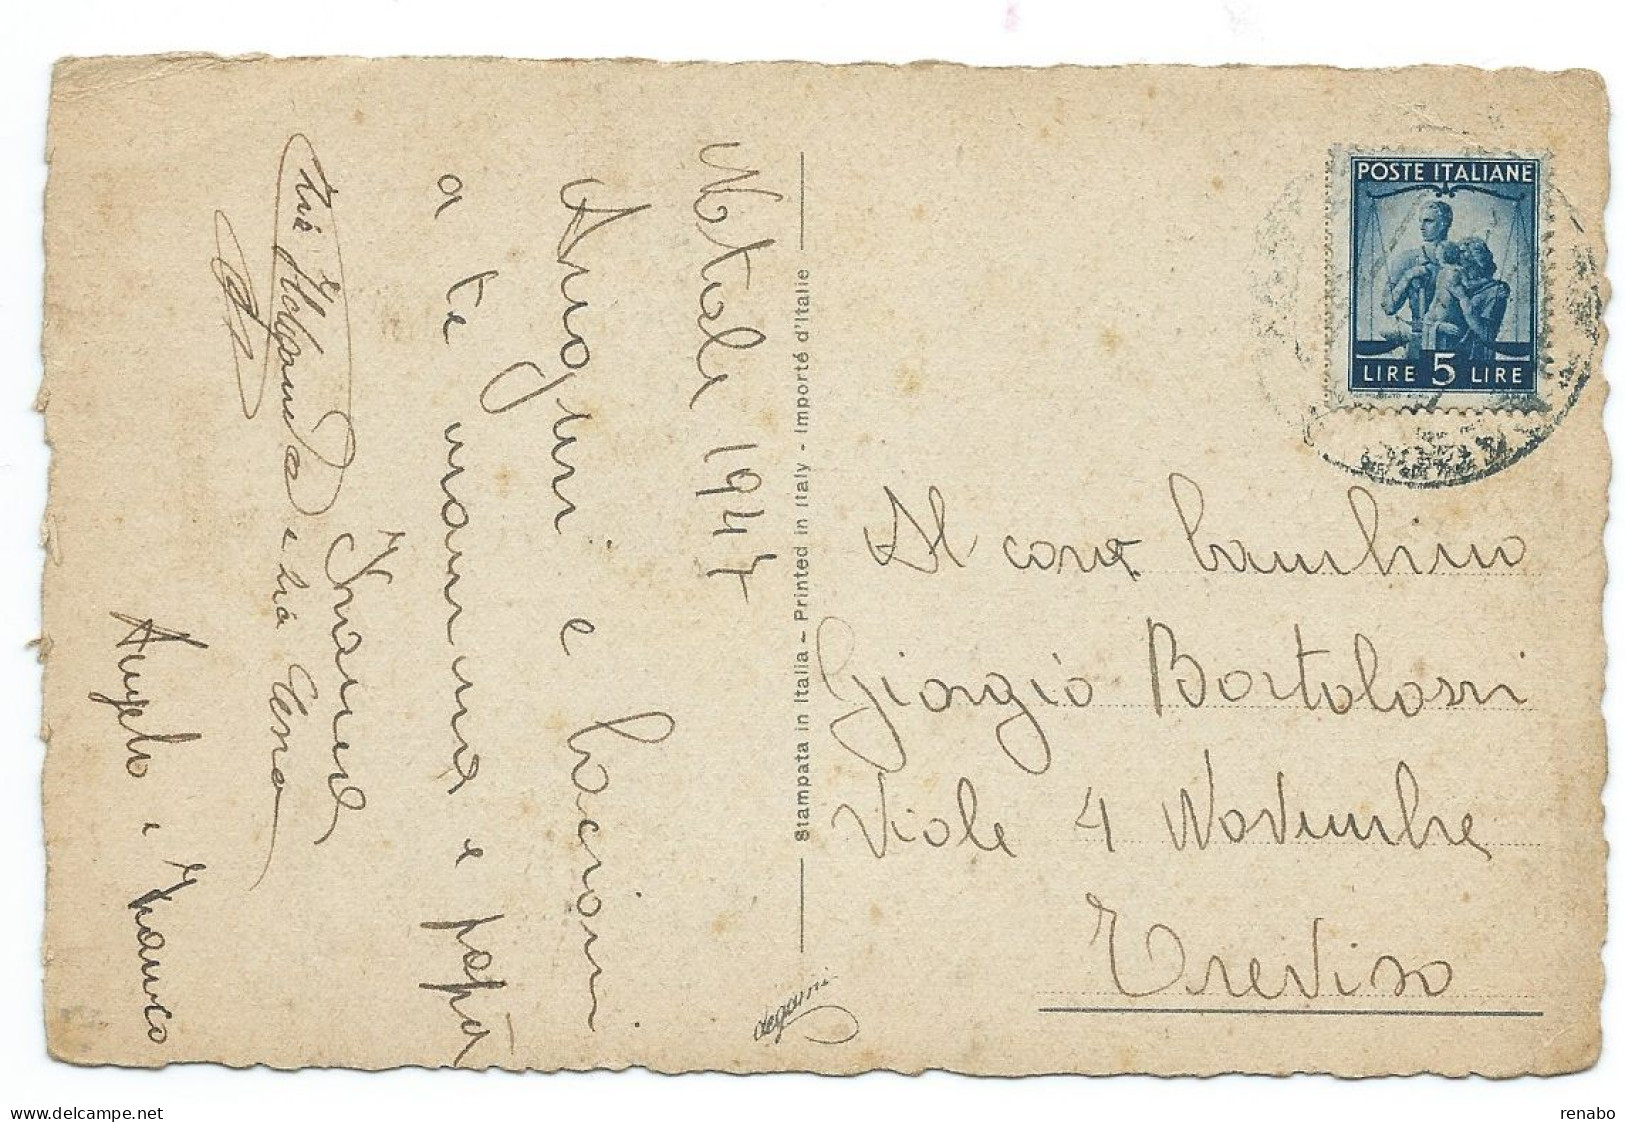 Natale 1947
Auguri e bacioni
a te mamma e papà
Franca
zia e zia
Angelo e Franco
Stampata in Italia - Printed in Italy - Importé d'Italie
degami
POSTE ITALIANE
LIRE 5 LIRE
Al caro bambino
Giorgio Bortolossi
Viale 4 Novembre
Treviso
delcampe.net
renabo